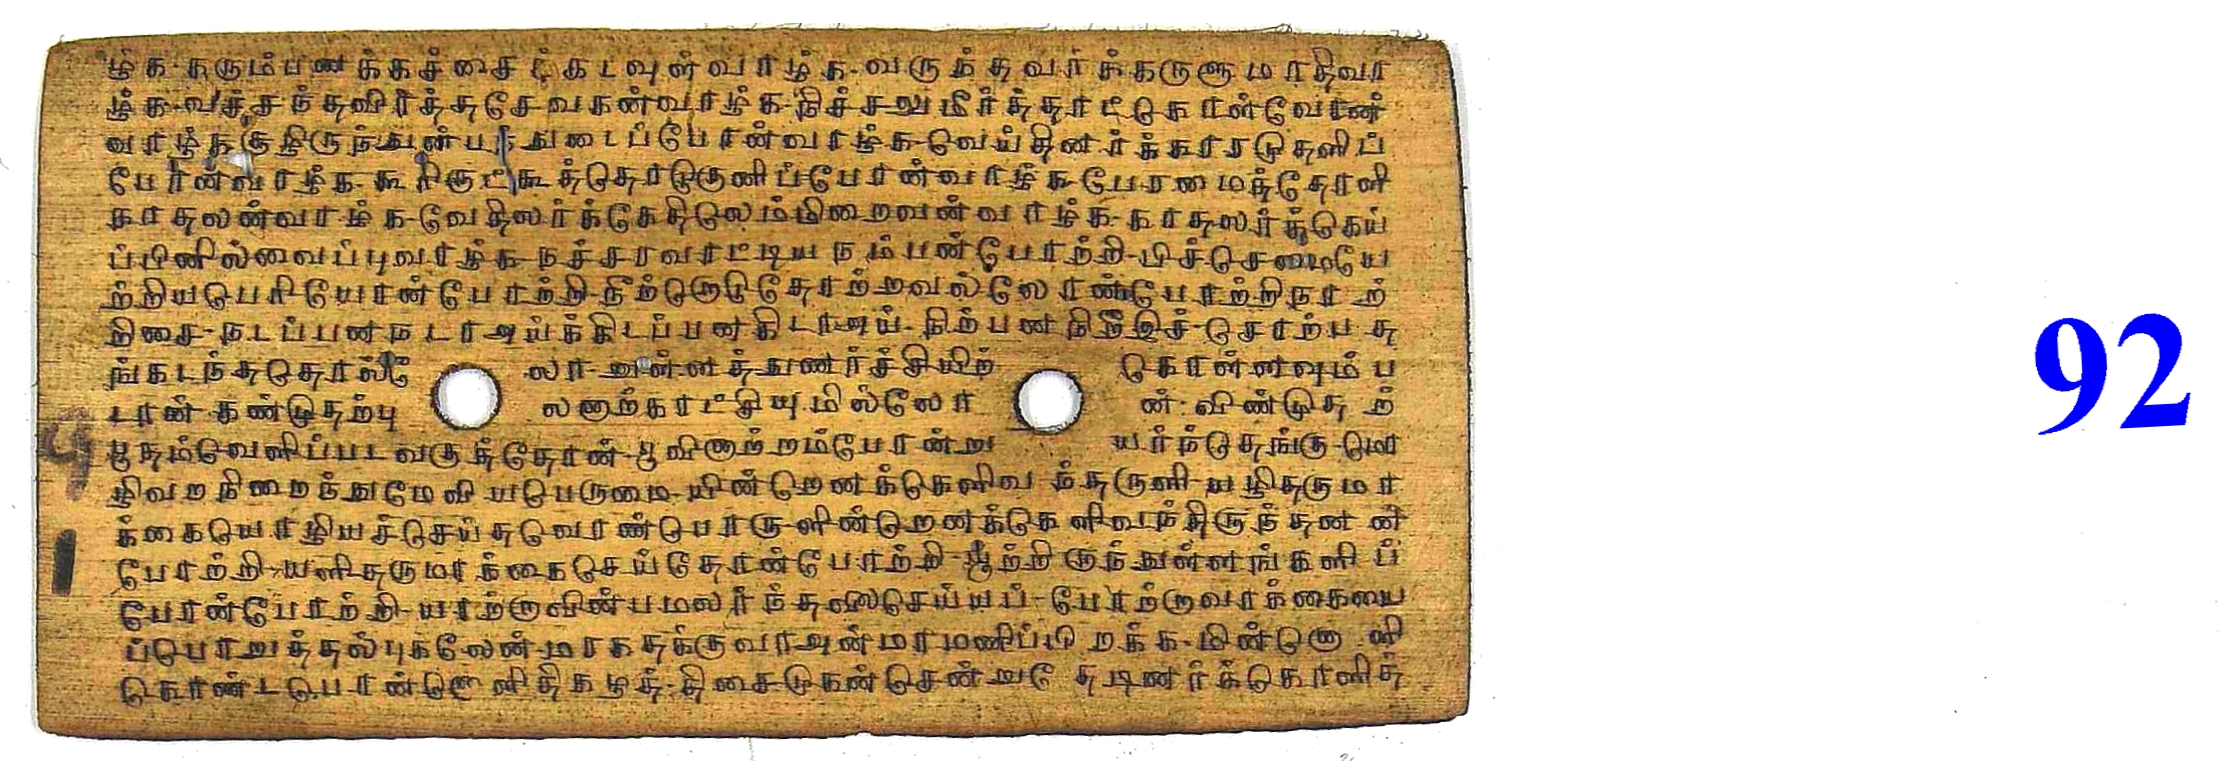 ழ்க-கரும்பணக்கச்சைக்கடவுள்வாழ்க-வருந்தவர்க்கருளுமாதிவா
ழ்க-வச்சந்தவிர்த்தசேவகன்வாழ்க-நிச்சலுமீர்த்தாட்கொள்வோன்
வாழ்கசூழிருந்துன்பந்துடைப்போன்வாழ்க-வெய்தினர்க்காரமுதளிப்
போன்வாழ்க-கூரிருட்கூத்தொடுகுனிப்போன்வாழ்கபேரமைத்தோளி
காதலன்வாழ்க-வேதிலர்க்கேதிலெம்மிறைவன்வாழ்க-காதலர்க்கெய்
ப்பினில்வைப்புவாழ்க-நச்சரவாட்டியநம்பன்போற்றி-பிச்செமையே
ற்றியபெரியோன்போற்றி-நீற்றொடுதோற்றவல்லோன்போற்றிநாற்
றிசை-நடப்பனநடாஅய்க்கிடப்பனகிடாஅய்-நிற்பனநிறீஇச்-சொற்பத
ங்கடந்ததொல்லோ லா-னுள்ளத்துணர்ச்சியிற் கொள்ளவும்ப
டான்-கண்முதற்பு லனாற்காட்சியுமில்லோ ன்-விண்முதற்
பூதம்வெளிப்படவகுத்தோன்-பூவினாற்றம்போன்று யர்ந்தெங்கு-மொ
ழிவறநிறைந்துமேவியபெருமை-யின்றெனக்கெளிவந்தருளி-யழிதருமா
க்கையொழியச்செய்தவொண்பொரு-ளின்றெனக்கெளிவந்திருந்தனன்
போற்றி-யளிதருமாக்கைசெய்தோன்போற்றி-யூற்றிருந்துள்ளங்களிப்
போன்போற்றி-யாற்றாவின்பமலர்ந்தலைசெய்யப்-போற்றாவாக்கையை
ப்பொறுத்தல்புகலேன்-மரகதக்குவாஅன்மாமணிப்பிறக்க-மின்னொளி
கொண்டபொன்னொளிதிகழத்-திசைமுகன்சென்றுதேடினர்க்கொளித்
92